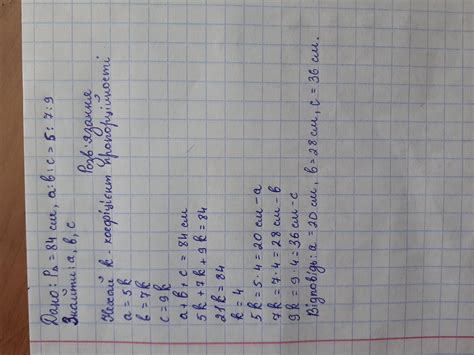 Дано: P∆ = 84 см, a:b:c = 5:7:9
Знайти: a, b, c
Розв'язання
Нехай k - коефіцієнт пропорційності
a = 5k
b = 7k
c = 9k
a + b + c = 84 см
5k + 7k + 9k = 84
21k = 84
k = 4
5k = 5·4 = 20 см - a
7k = 7·4 = 28 см - b
9k = 9·4 = 36 см - c
Відповідь: a = 20 см, b = 28 см, c = 36 см.